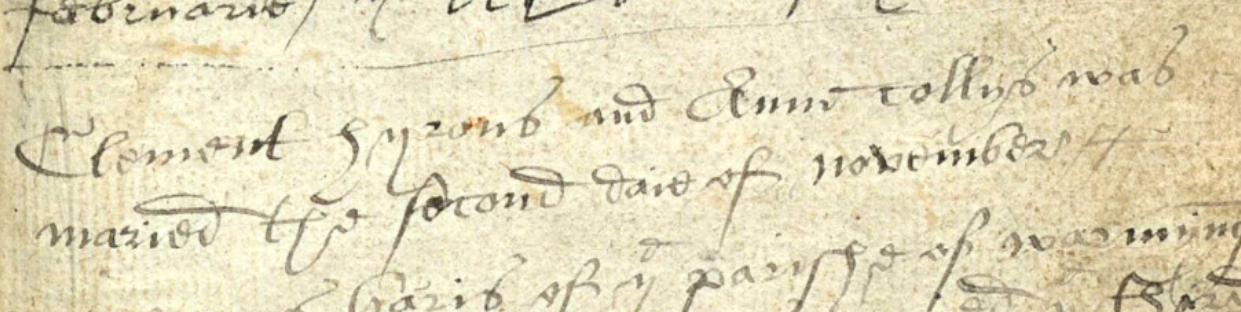 februarie
Clement hyrons and Anne collys was
maried the second daie of november
haris of ye parishe of warming
third